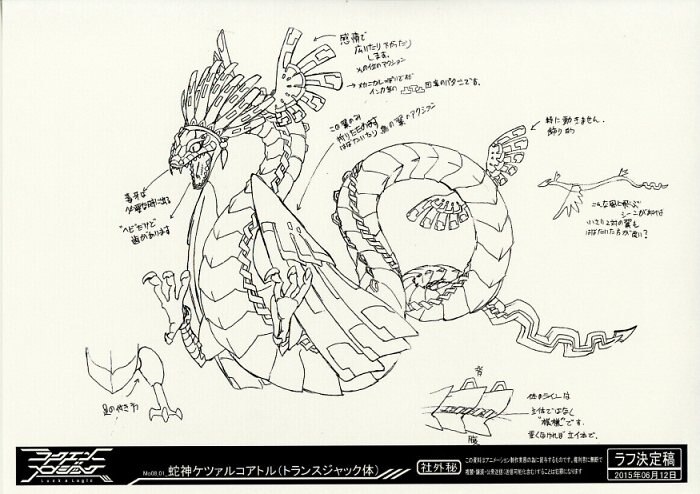 感情で
広げたり下がったり
します。
その位のアクション
メカニカルっぽいですが
インカ帝の 図案のパターンです。
この翼のみ
折りたたみます
はばたいたり鳥の翼のアクション
特に動きません。
飾りもの
毒牙は
必要な時に出る
"ヘビ"だけど
歯があります
こんな風に飛ぶ
シーンがあれば
小さな2対の翼も
はばたいた方が良い?
足の付き方
背
腹
体のラインは
立体ではなく
"模様"です。
ラクエンロジック
Luck & Logic
No09.01_蛇神ケツァルコアトル(トランスジャック体)
社外秘
この資料はアニメーション制作業務の為に開示するものです。権利者に無断で
複製・譲渡・公衆送信(送信可能化含む)することは犯罪になります
ラフ決定稿
2015年06月12日